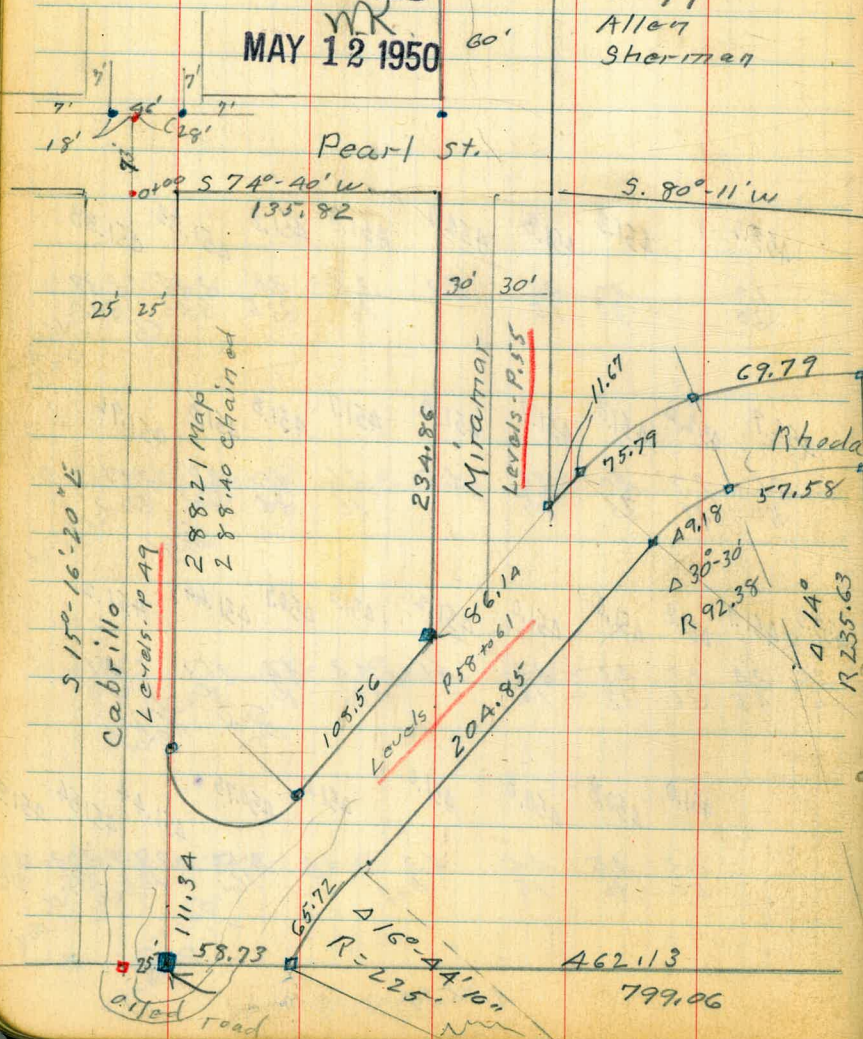 MAY 12 1950
60'
Allen
Sherman
7'
7'
7'
46'
7'
18'
28'
Pearl St.
0+00
S 74°-40' W.
135.82
S. 80°-11' W
25'
25'
30'
30'
S 15°-16'-20" E
Cabrillo
Levels - P 49
288.21 Map
288.40 Chained
234.86
Miramar
Levels - P.55
11.67
69.79
75.79
Rhoda
57.58
49.18
Δ 30°-30'
R 92.38
Δ 14°
R 235.63
86.14
108.56
Levels P58 to 61
204.85
111.34
65.72
Δ 16°-44'10"
R = 225'
25'
58.73
462.13
799.06
oiled road